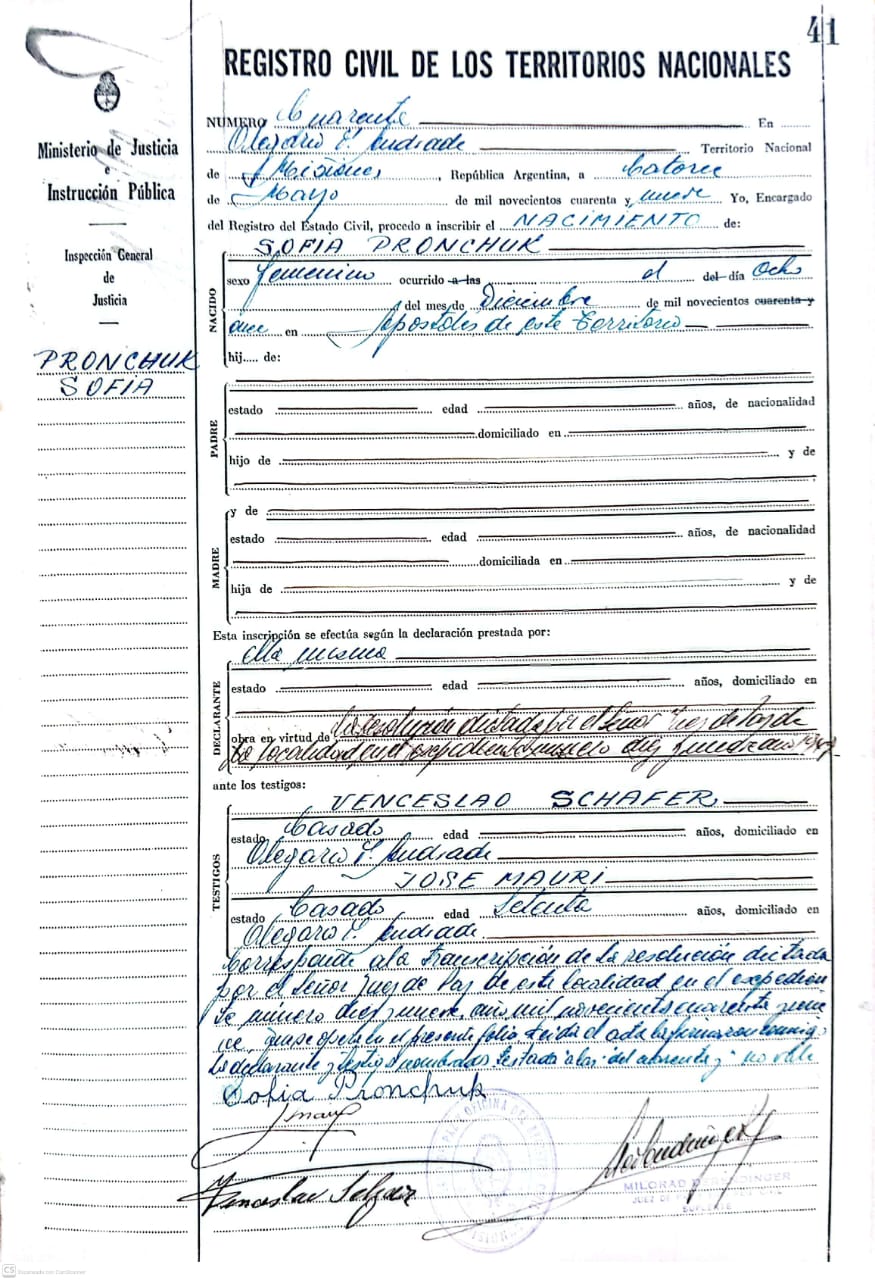 41
REGISTRO CIVIL DE LOS TERRITORIOS NACIONALES
Ministerio de Justicia
e
Instrucción Pública
Inspección General
de
Justicia
PRONCHUK
SOFIA
NUMERO Cuarenta En
Olegario V. Andrade Territorio Nacional
de Misiones, República Argentina, a Catorce
de Mayo de mil novecientos cuarenta y nueve Yo, Encargado
del Registro del Estado Civil, procedo a inscribir el NACIMIENTO de:
NACIDO
SOFIA PRONCHUK
sexo femenino ocurrido a las el del día Ocho
del mes de Diciembre de mil novecientos cuarenta y
once en Apostoles de este Territorio
hij.... de:
PADRE
estado edad años, de nacionalidad
domiciliado en
hijo de y de
MADRE
y de
estado edad años, de nacionalidad
domiciliada en
hija de y de
Esta inscripción se efectúa según la declaración prestada por:
DECLARANTE
ella misma
estado edad años, domiciliado en
obra en virtud de la resolución dictada por el Señor Juez de Paz de
la localidad en el expediente numero diez y nueve año 1949
ante los testigos:
TESTIGOS
VENCESLAO SCHAFER
estado Casado edad años, domiciliado en
Olegario V. Andrade
JOSE MAURI
estado Casado edad Setenta años, domiciliado en
Olegario V. Andrade
Corresponde a la transcripción de la resolución dictada
por el Señor Juez de Paz de esta localidad en el expedien
te número diez y nueve, año mil novecientos cuarenta y nue
ve, que se en el presente folio Leida el acta la firmaron conmigo
la declarante y testigos nombrados. Testado "a las" "del" "cuarenta y" no vale
Sofia Pronchuk
Venceslao
MILORAD
JUEZ DE
SUPLENTE
CS Escaneado con CamScanner